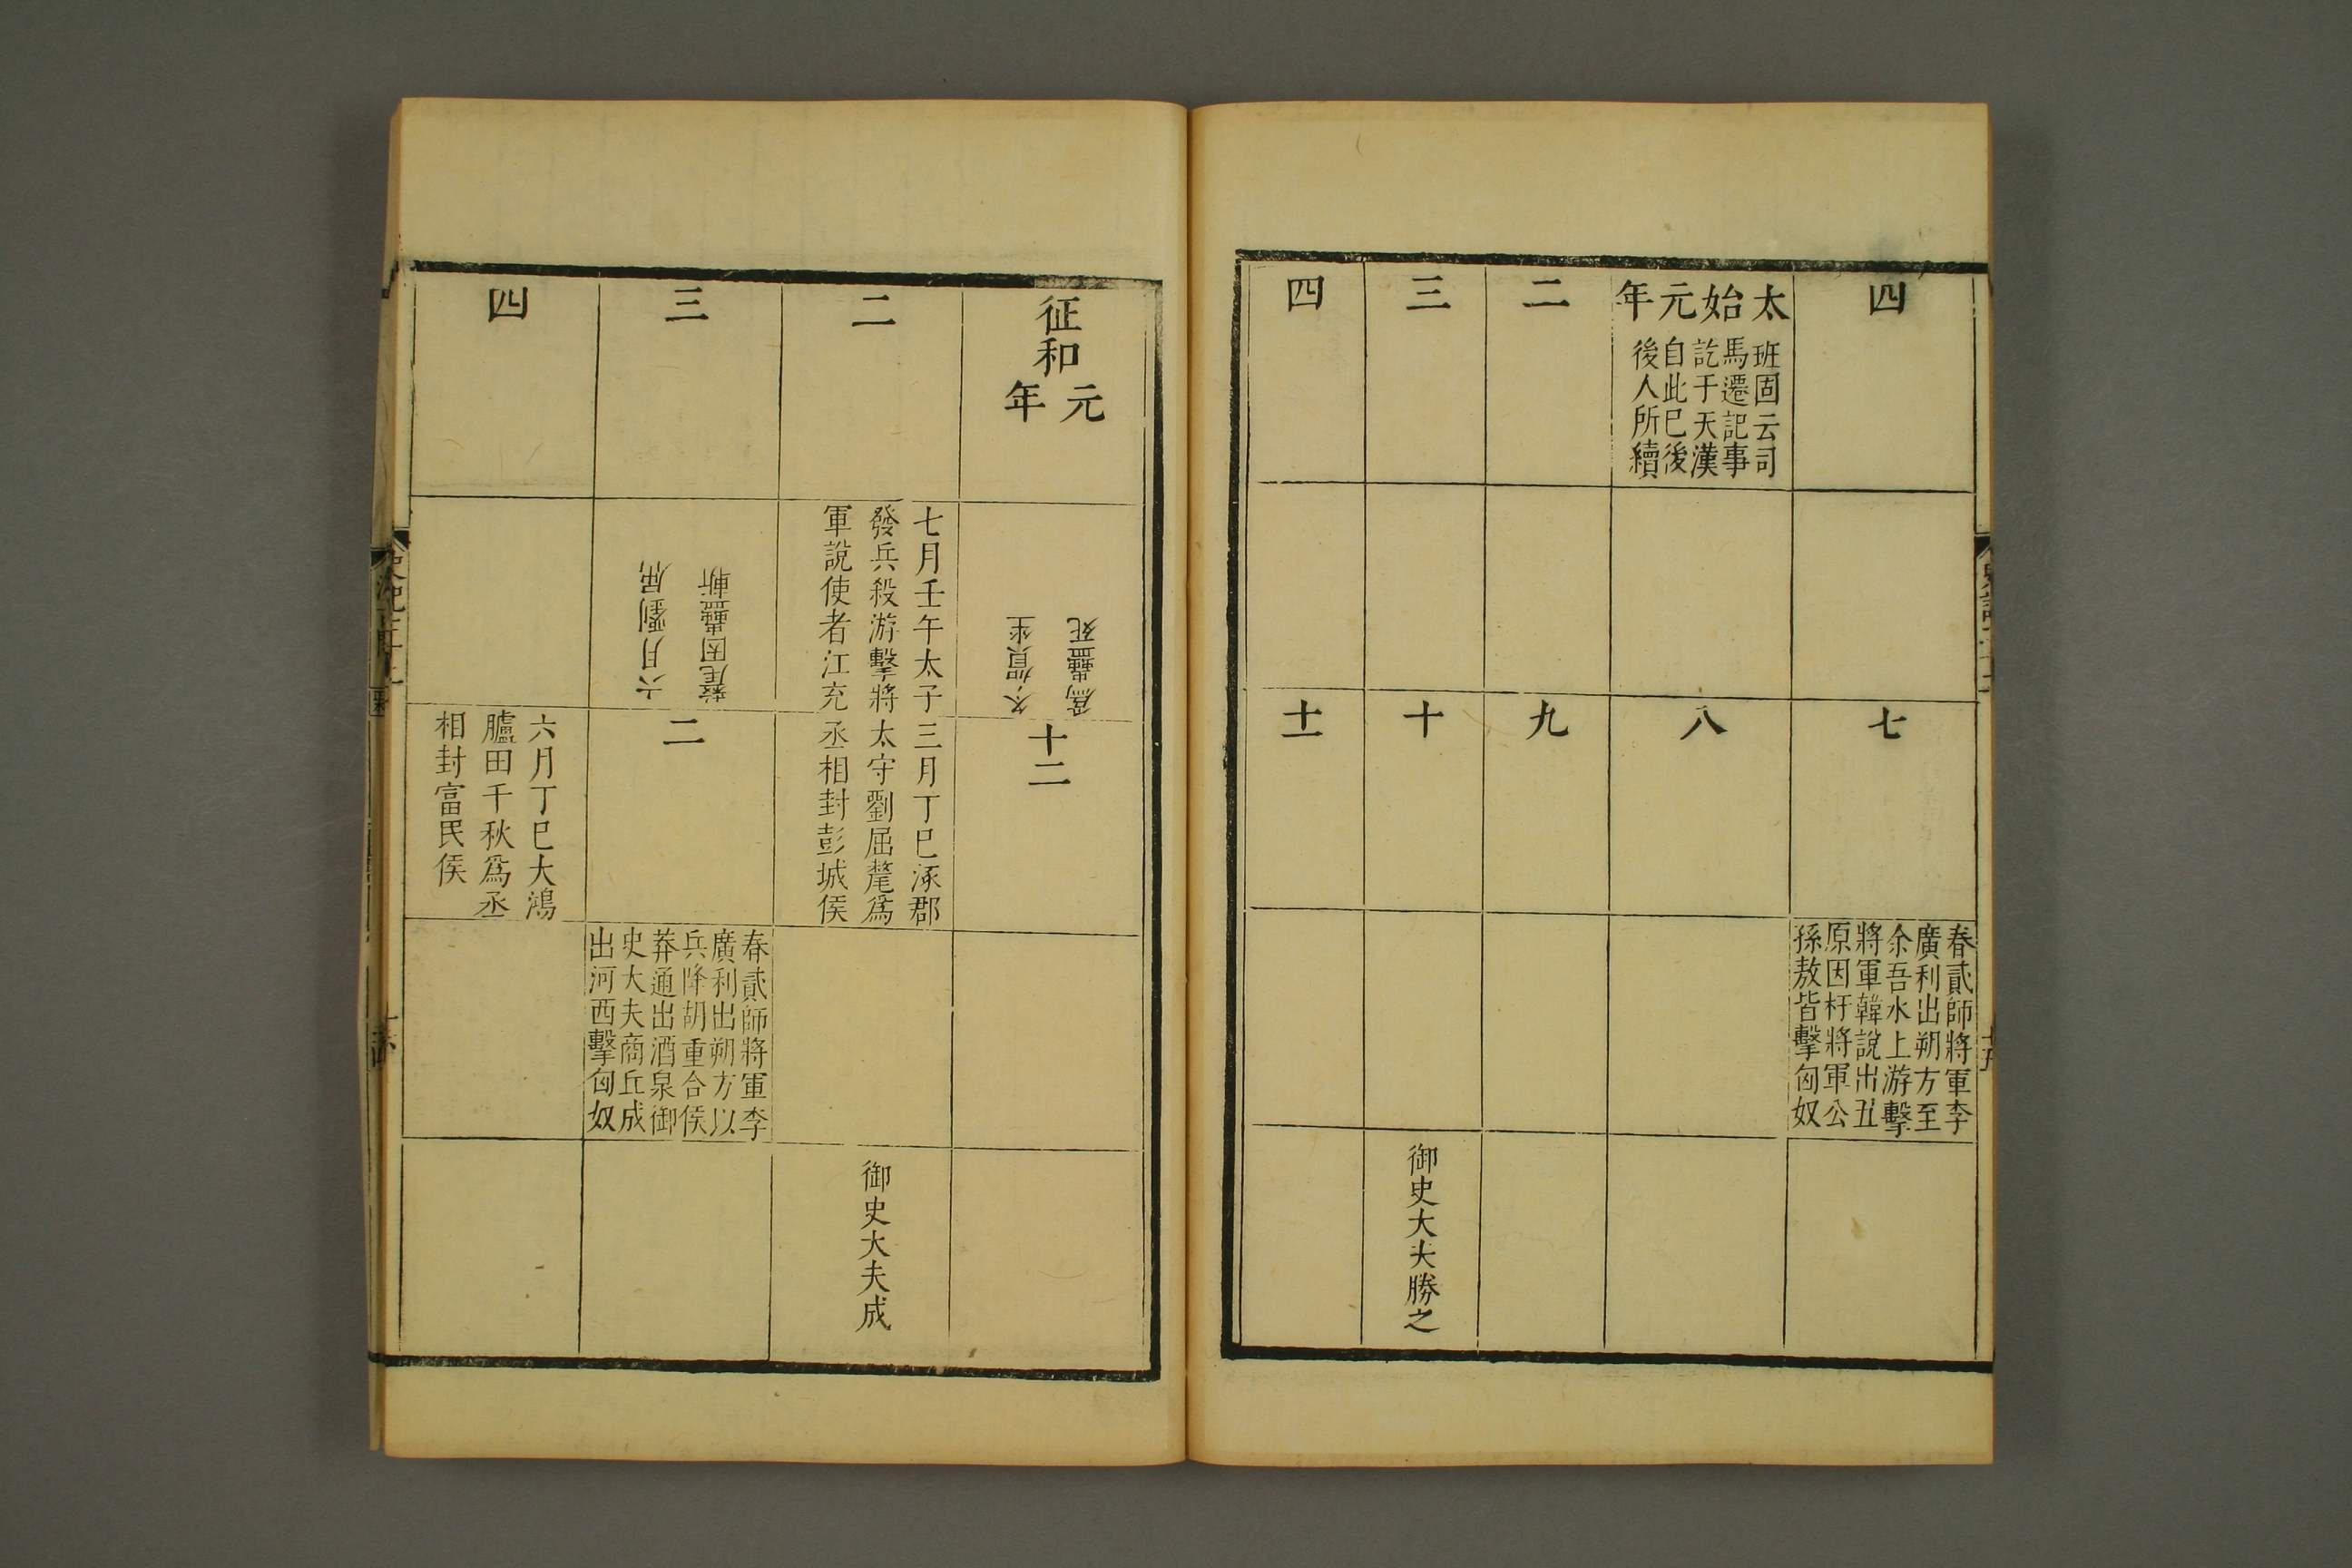 四
七
春貳師將軍李
廣利出朔方至
余吾水上游擊
將軍韓說出五
原因杅將軍公
孫敖皆擊匈奴
太始元年
班固云司
馬遷記事
訖于天漢
自此已後
後人所續
八
二
九
三
十
御史大夫勝之
四
十一
征和
元年
冬賀坐
爲蠱死
十二
二
七月壬午太子
發兵殺游擊將
軍說使者江充
三月丁巳涿郡
太守劉屈氂爲
丞相封彭城侯
御史大夫成
三
六月劉屈
氂因蠱斬
二
春貳師將軍李
廣利出朔方以
兵降胡重合侯
莽通出酒泉御
史大夫商丘成
出河西擊匈奴
四
六月丁巳大鴻
臚田千秋爲丞
相封富民侯